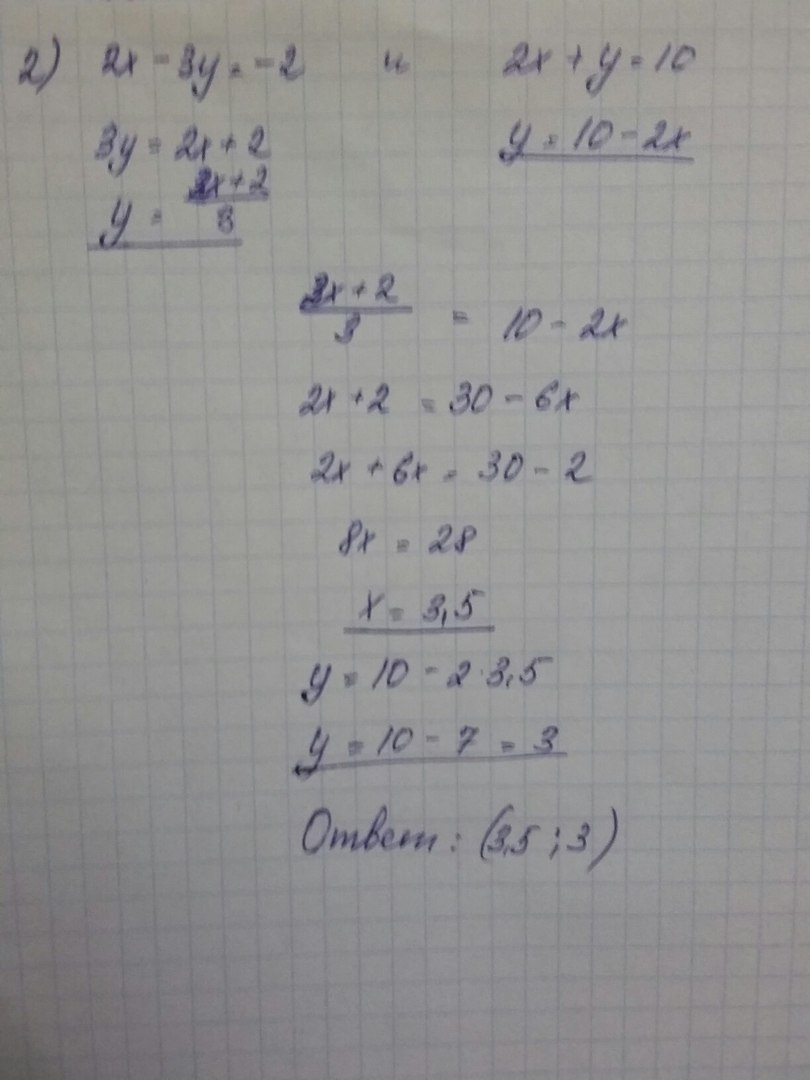 2) 2x - 3y = -2 и 2x + y = 10
3y = 2x + 2 y = 10 - 2x
y = (2x + 2)/3
(2x + 2)/3 = 10 - 2x
2x + 2 = 30 - 6x
2x + 6x = 30 - 2
8x = 28
x = 3,5
y = 10 - 2·3,5
y = 10 - 7 = 3
Ответ: (3,5; 3)